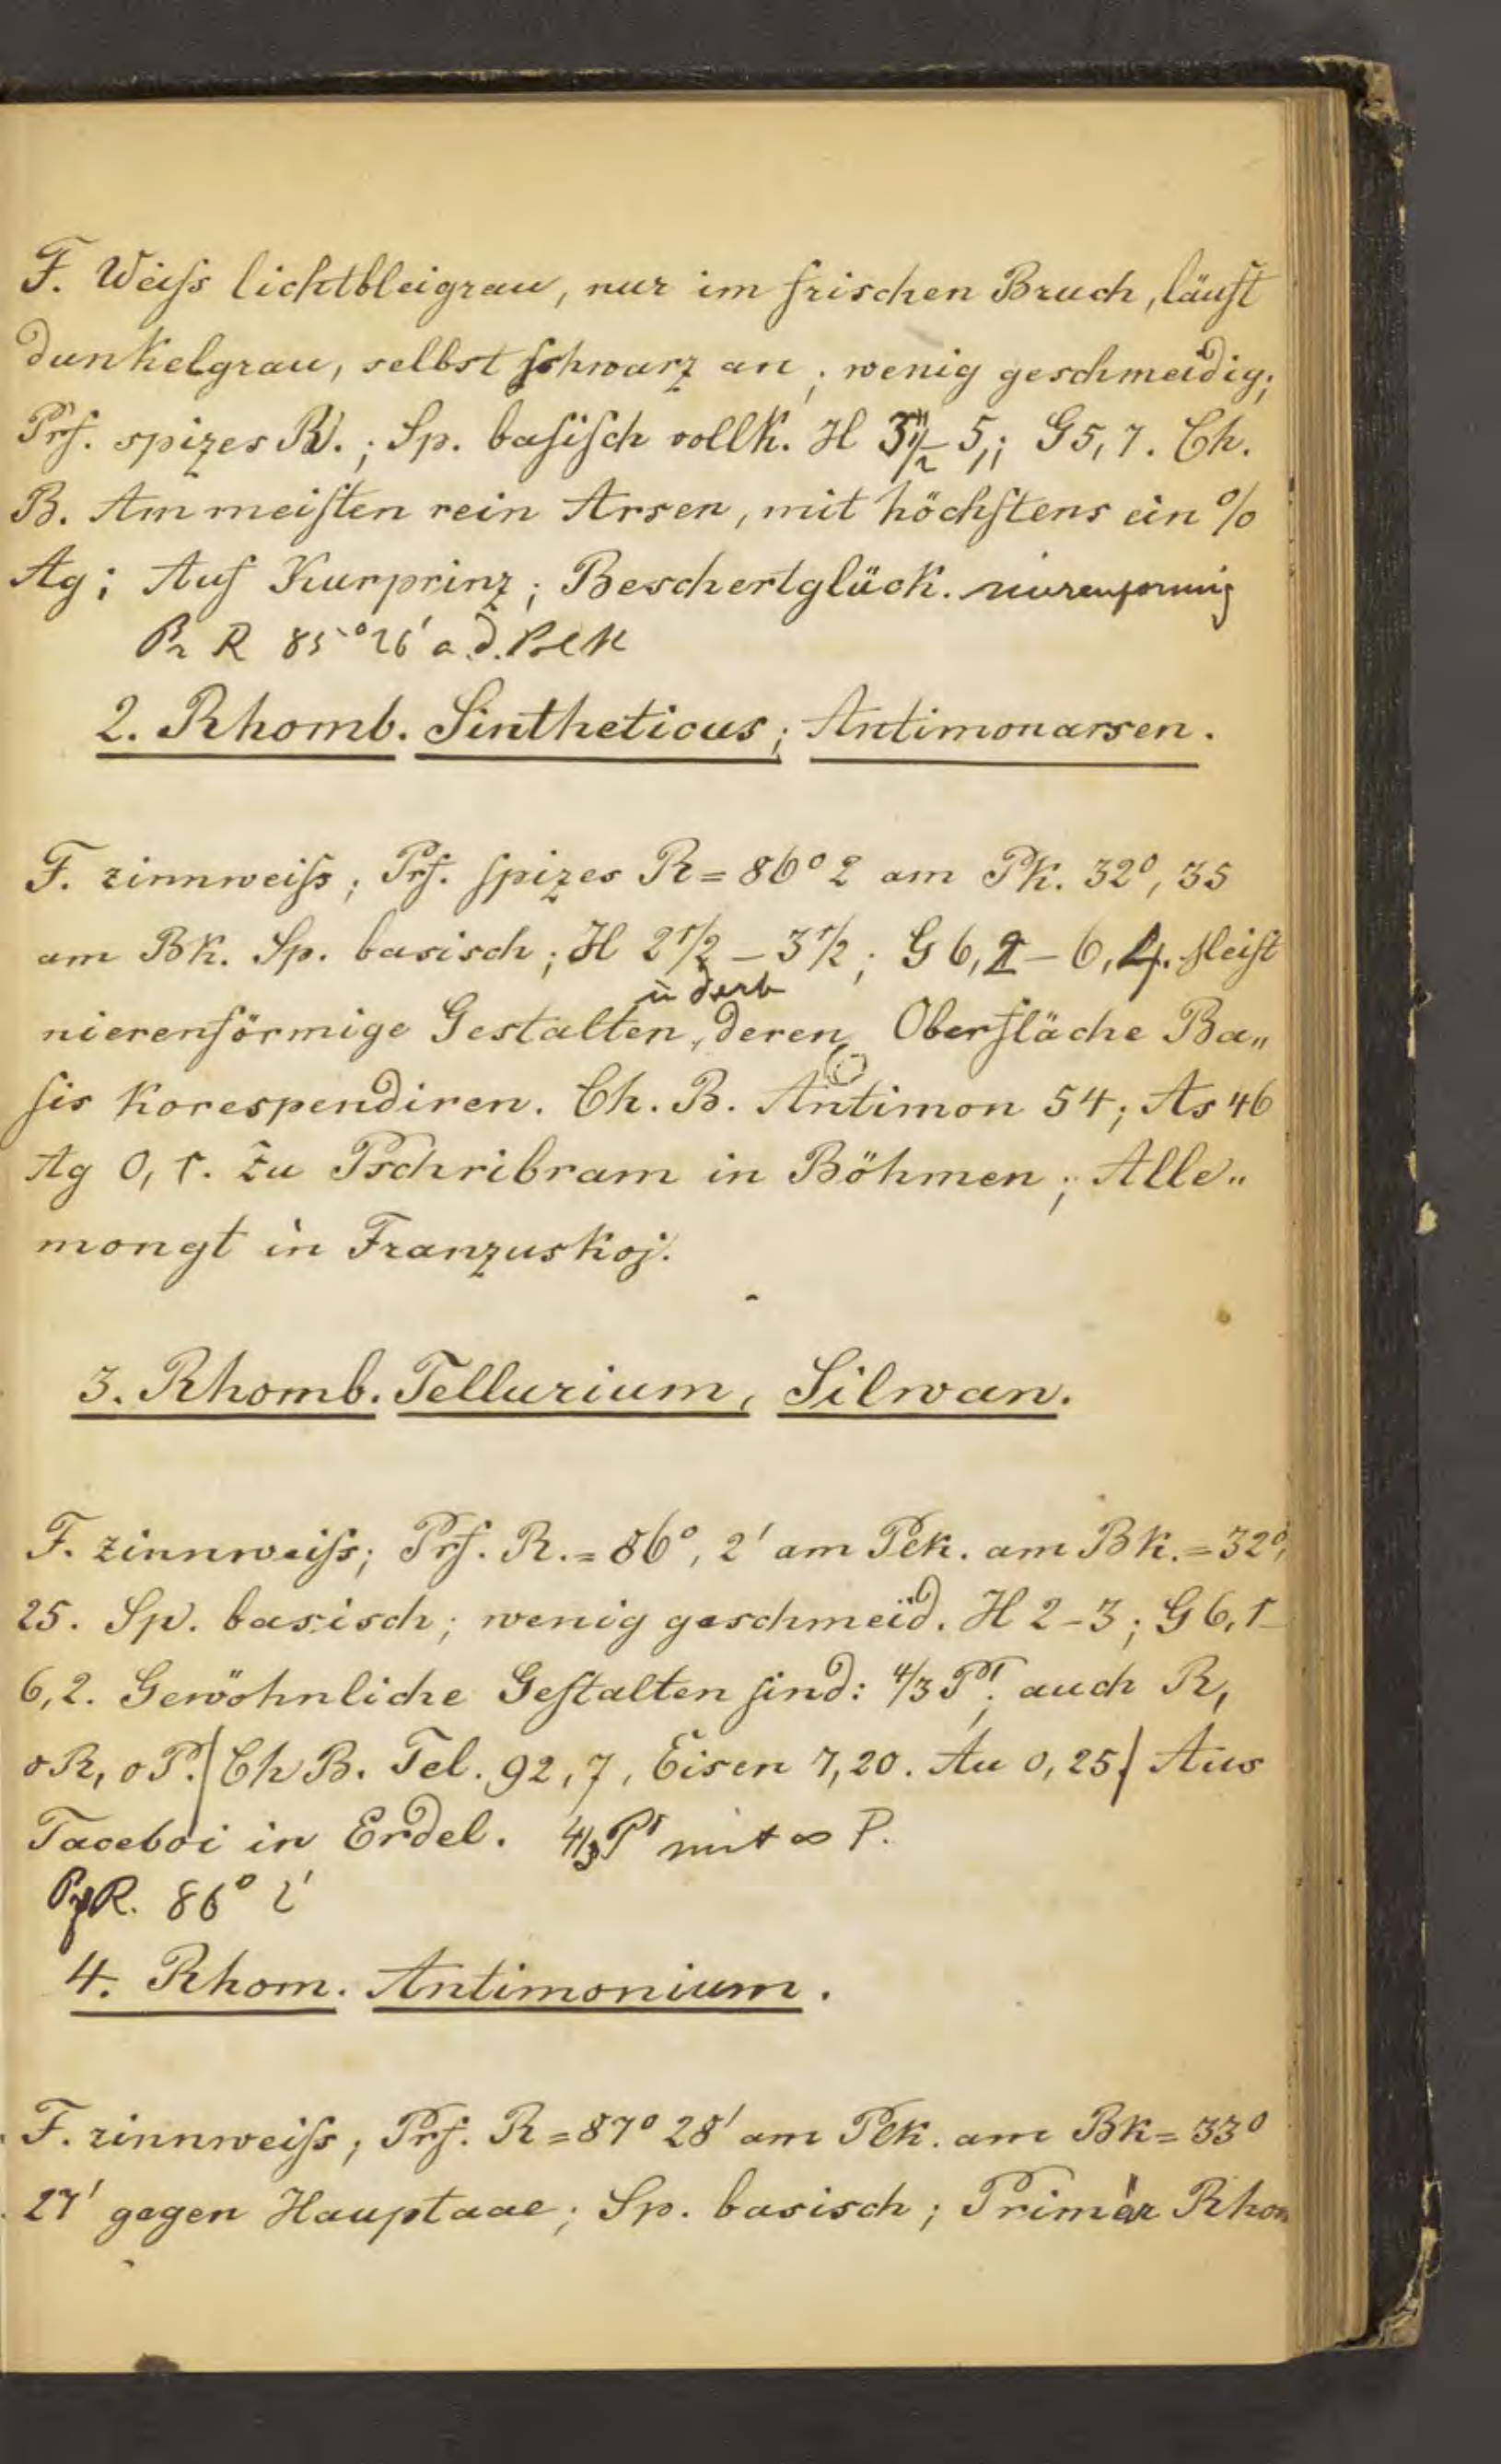 F. Weiſs lichtbleigrau, nur im frischen Bruch, läuft
dunkelgrau, selbst schwarz an; wenig geschmeidig;
Prf. spizes R.; Sp. baſiſch vollk. H 3 1/2 – 5; G 5,7. Ch.
B. Am meiſten rein Arsen, mit höchſtens ein %
Ag; Auf Kurprinz; Beschertglück. nierenformig
Pr R 85° 26' a d. Polk
2. Rhomb. Sintheticus; Antimonarsen.
F. zinnweiſs; Prf. ſpizes R = 86° 2 am Pk. 32°, 35
am Bk. Sp. basisch; H 2 1/2 – 3 1/2; G 6,2 – 6,4. Meiſt
u derb
nierenförmige Gestalten, deren Oberfläche Ba„
ſis korespendiren. Ch. B. Antimon 54; As 46
Ag 0,1. Zu Pschribram in Böhmen; Alle„
mongt in Franzuskoj.
3. Rhomb. Tellurium, Silwan.
F. zinnweiſs; Prf. R. = 86°, 2' am Pek. am Bk. = 32°,
25. Sp. basisch; wenig geschmeid. H 2-3; G 6,1-
6,2. Gewöhnliche Geſtalten ſind: 4/3 P'; auch R,
oR, oP. / Ch B. Tel. 92,7, Eisen 7,20. Au 0,25 / Aus
Faceboi in Erdel. 4/3 P' mit ∞ P.
R. 86° 2'
4. Rhom. Antimonium.
F. zinnweiſs, Prf. R = 87° 28' am Pek. am Bk = 33°
27' gegen Hauptaae; Sp. basisch; Primär Rhom